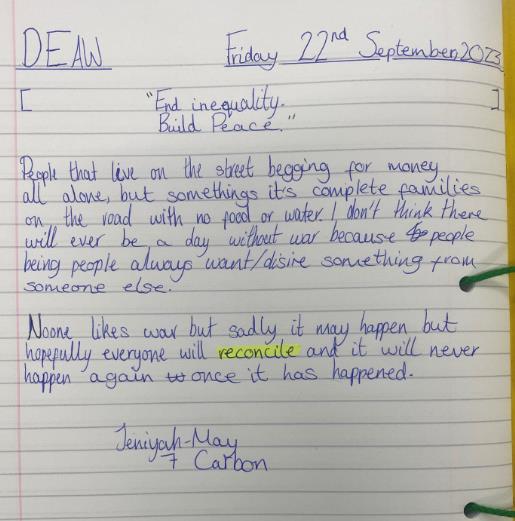 DEAW Friday 22nd September, 2023
[ "End inequality. ]
Build Peace."
People that live on the street begging for money
all alone, but somethings it's complete families
on the road with no food or water. I don't think there
will ever be a day without war because people
being people always want/disire something from
someone else.
Noone likes war but sadly it may happen but
hopefully everyone will reconcile and it will never
happen again once it has happened.
Jeniyah-May
7 Carbon